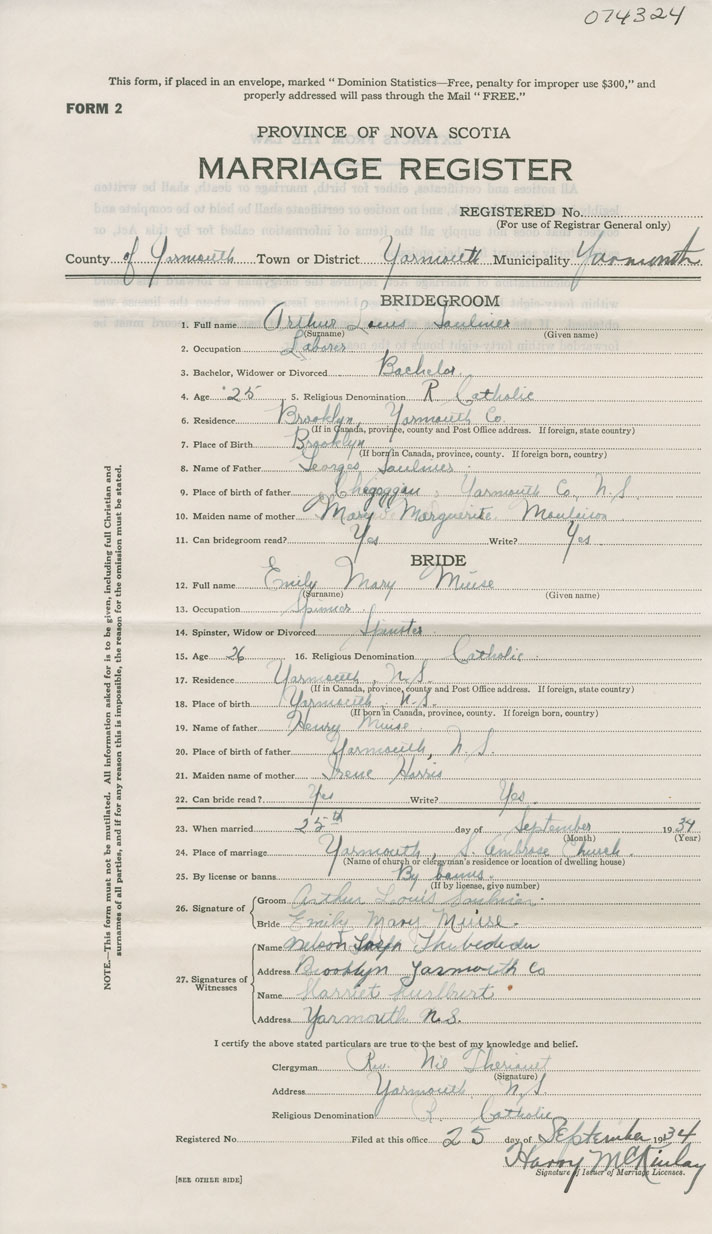 074324
This form, if placed in an envelope, marked " Dominion Statistics—Free, penalty for improper use $300," and
properly addressed will pass through the Mail " FREE."
FORM 2
PROVINCE OF NOVA SCOTIA
MARRIAGE REGISTER
REGISTERED No.
(For use of Registrar General only)
County of Yarmouth Town or District Yarmouth Municipality Yarmouth
BRIDEGROOM
1. Full name Arthur Louis Saulnier
(Surname) (Given name)
2. Occupation Laborer
3. Bachelor, Widower or Divorced Bachelor
4. Age 25 5. Religious Denomination R. Catholic
6. Residence Brooklyn, Yarmouth Co.
(If in Canada, province, county and Post Office address. If foreign, state country)
7. Place of Birth Brooklyn
(If born in Canada, province, county. If foreign born, country)
8. Name of Father Georges Saulnier
9. Place of birth of father Chegoggan, Yarmouth Co, N.S.
10. Maiden name of mother Mary Marguerite Moulaison
11. Can bridegroom read? Yes Write? Yes
BRIDE
12. Full name Emily Mary Muise
(Surname) (Given name)
13. Occupation
14. Spinster, Widow or Divorced Spinster
15. Age 26 16. Religious Denomination Catholic
17. Residence Yarmouth, N.S.
(If in Canada, province, county and Post Office address. If foreign, state country)
18. Place of birth Yarmouth, N.S.
(If born in Canada, province, county. If foreign born, country)
19. Name of father Henry Muise
20. Place of birth of father Yarmouth, N.S.
21. Maiden name of mother Irene Harris
22. Can bride read? Yes Write? Yes.
23. When married 25th day of September 1934
(Month) (Year)
24. Place of marriage Yarmouth, S. Ambrose Church.
(Name of church or clergyman's residence or location of dwelling house)
25. By license or banns By banns.
(If by license, give number)
26. Signature of
Groom Arthur Louis Saulnier
Bride Emily Mary Muise.
27. Signatures of Witnesses
Name Nelson Joseph
Address Brooklyn Yarmouth Co
Name Harriet Hurlburt
Address Yarmouth N.S.
I certify the above stated particulars are true to the best of my knowledge and belief.
Clergyman Rev. Nil Theriault
(Signature)
Address Yarmouth N.S.
Religious Denomination R. Catholic
Registered No. Filed at this office 25 day of September 1934
Harry McKinlay
Signature of Issuer of Marriage Licenses.
[SEE OTHER SIDE]
NOTE.—This form must not be mutilated. All information asked for is to be given, including full Christian and
surnames of all parties, and if for any reason this is impossible, the reason for the omission must be stated.